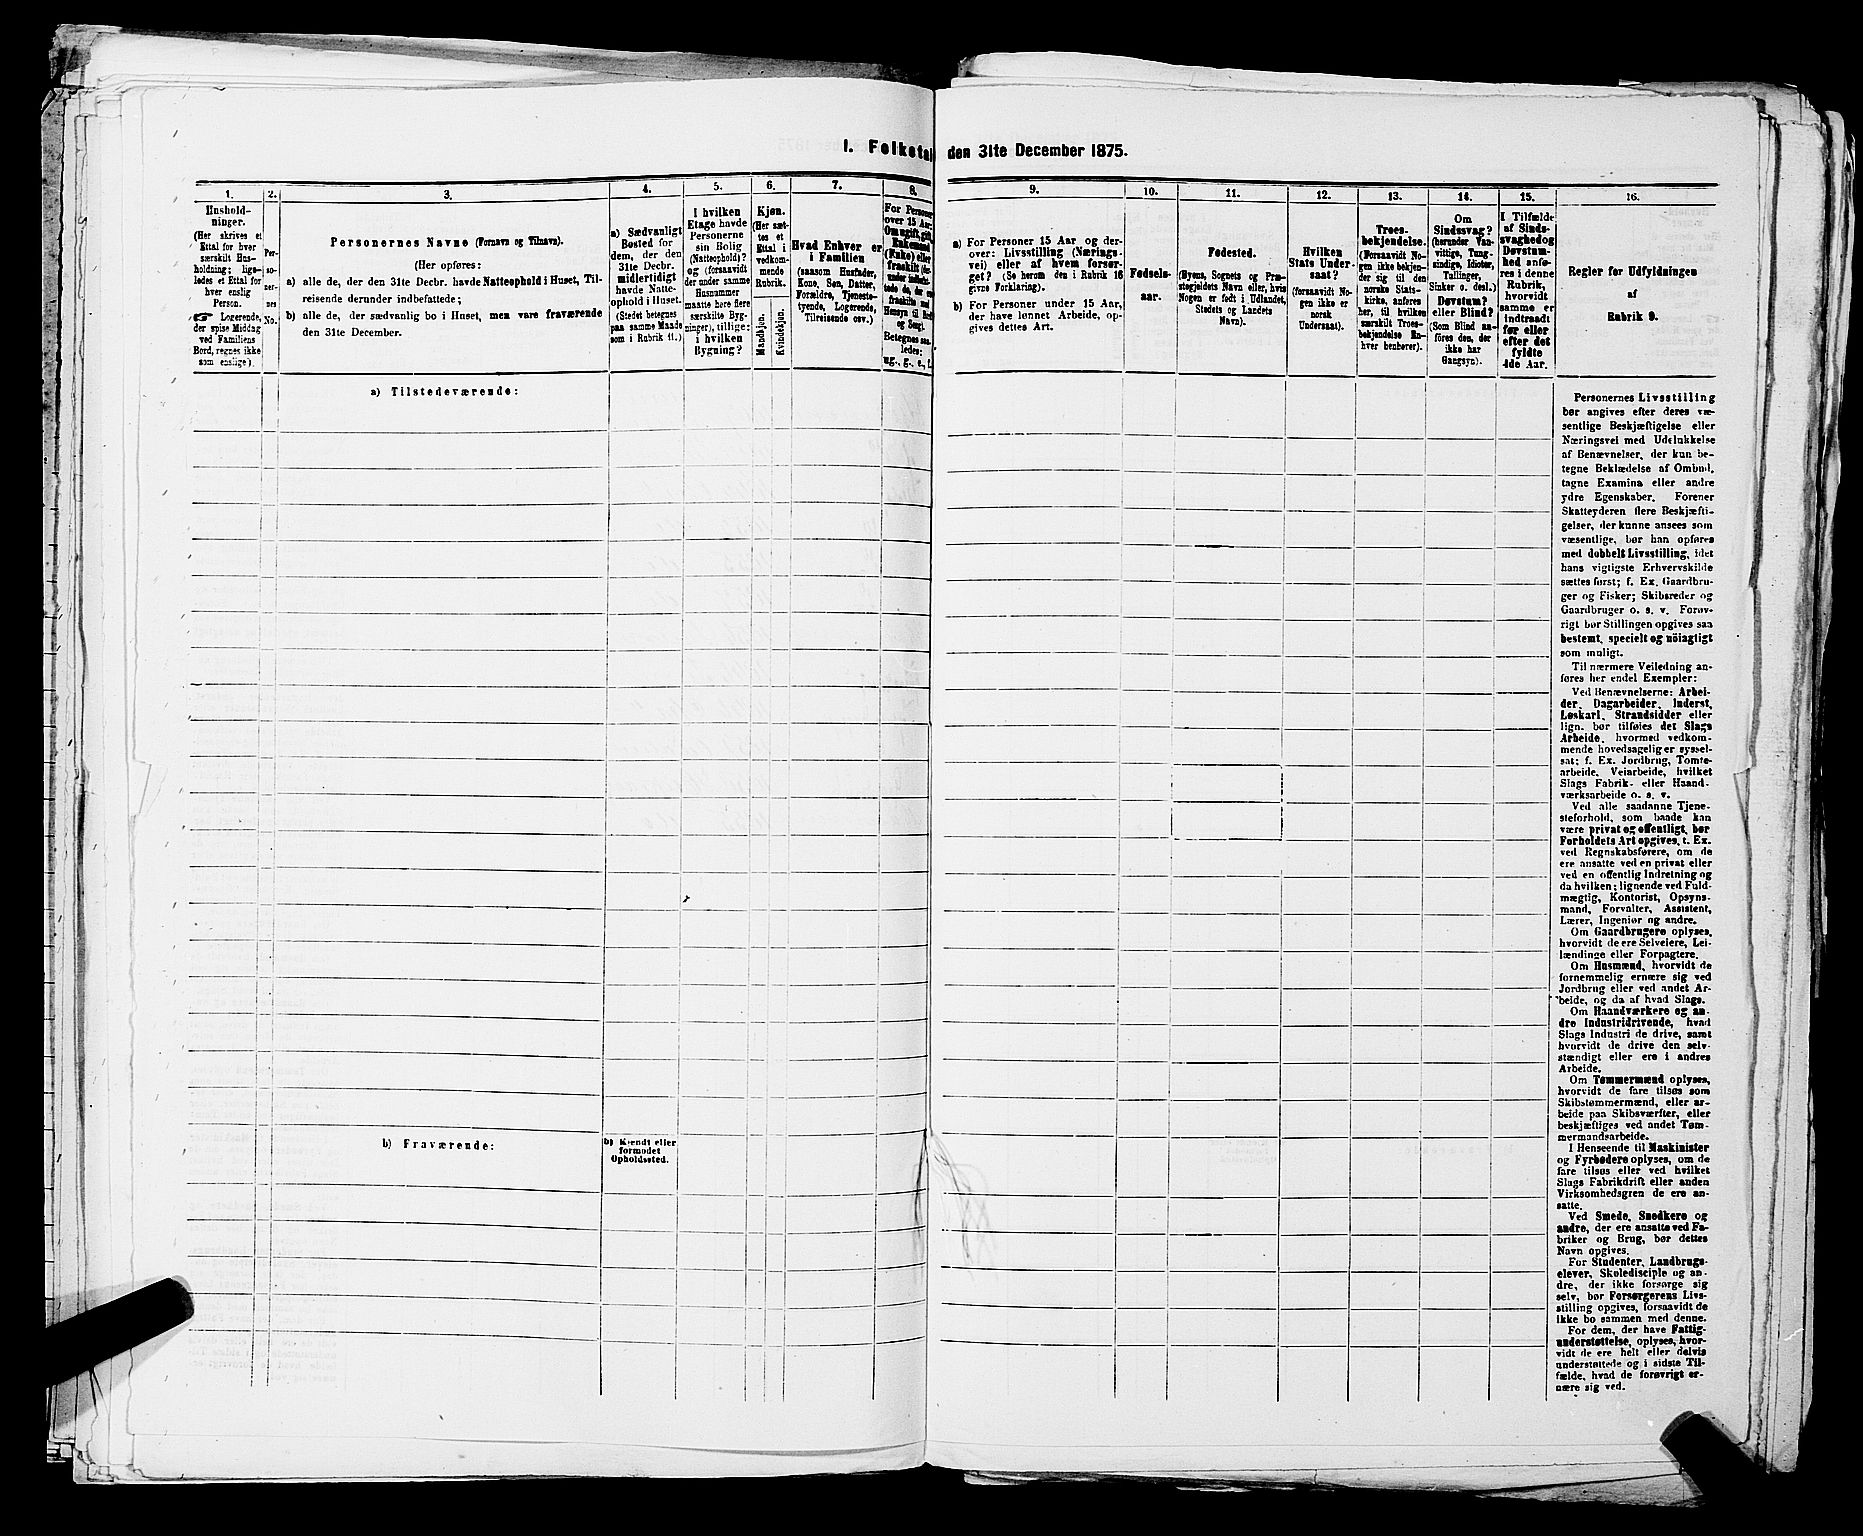 I. Folketal den 31te December 1875.
1.
Husholdninger.
(Her skrives et
Ettal for hver
særskilt Husholdning;
ligeledes et Ettal for
hver enslig
Person.
☞ Logerende,
der spise Middag
ved Familiens
Bord, regnes ikke
som enslige).
2.
Personernes
No.
3.
Personernes Navne (Fornavn og Tilnavn).
(Her opføres:
a) alle de, der den 31te Decbr. havde Natteophold i Huset, Tilreisende
derunder indbefattede;
b) alle de, der sædvanlig bo i Huset, men vare fraværende
den 31te December.
4.
a) Sædvanligt
Bosted for
dem, der den
31te Decbr.
midlertidigt
havde Natteophold
i Huset.
(Stedet betegnes
paa samme Maade
som i Rubrik 11.)
5.
I hvilken
Etage havde
Personerne
sin Bolig
(Natteophold)?
og (forsaavidt
der under samme
Husnummer
maatte høre flere
særskilte Bygninger),
tillige:
i hvilken
Bygning?
6.
Kjøn.
(Her sættes
et
Ettal i
vedkommende
Rubrik.
Mandkjøn.
Kvindekjøn.
7.
Hvad Enhver er
i Familien
(saasom Husfader,
Kone, Søn, Datter,
Forældre, Tjenestetyende,
Logerende,
Tilreisende osv.)
8.
For Personer
over 15 Aar:
Om ugift, gift,
Enkemand
(Enke) eller
fraskilt
Betegnes saaledes:
ug., g., e., f.
9.
a) For Personer 15 Aar og derover:
Livsstilling (Næringsvei)
eller af hvem forsørget?
(Se herom den i Rubrik 16
givne Forklaring).
b) For Personer under 15 Aar,
der have lønnet Arbeide, opgives
dettes Art.
10.
Fødselsaar.
11.
Fødested.
(Byens, Sognets og Præstegjeldets
Navn eller, hvis
Nogen er født i Udlandet,
Stedets og Landets
Navn).
12.
Hvilken
Stats Undersaat?
(forsaavidt Nogen
ikke er
norsk
Undersaat).
13.
Troesbekjendelse.
(Forsaavidt Nogen
ikke bekjender
sig til den
norske Statskirke,
anføres
her, til hvilken
særskilt Troesbekjendelse
Enhver
henhører).
14.
Om
Sindssvag?
(herunder Vanvittige,
Tungsindige,
Idioter,
Tullinger,
Sinker o. desl.)
Døvstum?
eller Blind?
(Som Blind anføres
den, der
ikke har
Gangsyn).
15.
I Tilfælde
af Sindssvaghed
og
Døvstumhed
anføres
i denne
Rubrik,
hvorvidt
samme er
indtraadt
før eller
efter det
fyldte
4de Aar.
16.
Regler for Udfyldningen
af
Rubrik 9.
a) Tilstedeværende:
b) Fraværende:
b) Kjendt eller
formodet
Opholdssted.
Personernes Livsstilling
bør angives efter deres væsentlige
Beskjæftigelse eller
Næringsvei med Udelukkelse
af Benævnelser, der kun betegne
Beklædelse af Ombud,
tagne Examina eller andre
ydre Egenskaber. Forener
Skatteyderen flere Beskjæftigelser,
der kunne ansees som
væsentlige, bør han opføres
med dobbelt Livsstilling, idet
hans vigtigste Erhvervskilde
sættes først; f. Ex. Gaardbruger
og Fisker; Skibsreder og
Gaardbruger o. s. v. Forøvrigt
bør Stillingen opgives saa
bestemt, specielt og nöiagtigt
som muligt.
Til nærmere Veiledning anføres
her endel Exempler:
Ved Benævnelserne: Arbeider,
Dagarbeider, Inderst,
Løskarl, Strandsidder eller
lign. bør tilføies det Slags
Arbeide, hvormed vedkommende
hovedsagelig er sysselsat;
f. Ex. Jordbrug, Tomtearbeide,
Veiarbeide, hvilket
Slags Fabrik- eller Haandværksarbeide
o. s. v.
Ved alle saadanne Tjenesteforhold,
som baade kan
være privat og offentligt, bør
Forholdets Art opgives, t. Ex.
ved Regnskabsførere, om de
ere ansatte ved en privat eller
ved en offentlig Indretning og
da hvilken; lignende ved Fuldmægtig,
Kontorist, Opsynsmand,
Forvalter, Assistent,
Lærer, Ingeniør og andre.
Om Gaardbrugere oplyses,
hvorvidt de ere Selveiere, Leilændinge
eller Forpagtere.
Om Husmænd, hvorvidt de
fornemmelig ernære sig ved
Jordbrug eller ved andet Arbeide,
og da af hvad Slags.
Om Haandværkere og andre
Industridrivende, hvad
Slags Industri de drive, samt
hvorvidt de drive den selvstændigt
eller ere i andres
Arbeide.
Om Tømmermænd oplyses,
hvorvidt de fare tilsøs som
Skibstømmermænd, eller arbeide
paa Skibsværfter, eller
beskjæftiges ved andet Tømmermandsarbeide.
I Henseende til Maskinister
og Fyrbødere oplyses, om de
fare tilsøs eller ved hvilket
Slags Fabrikdrift eller anden
Virksomhedsgren de ere ansatte.
Ved Smede, Snedkere og
andre, der ere ansatte ved Fabriker
og Brug, bør dettes
Navn opgives.
For Studenter, Landbrugselever,
Skoledisciple og andre,
der ikke forsørge sig
selv, bør Forsørgerens Livsstilling
opgives, forsaavidt de
ikke bo sammen med denne.
For dem, der have Fattigunderstøttelse,
oplyses, hvorvidt
de ere helt eller delvis
understøttede og i sidste Tilfælde,
hvad de forøvrigt ernære
sig ved.